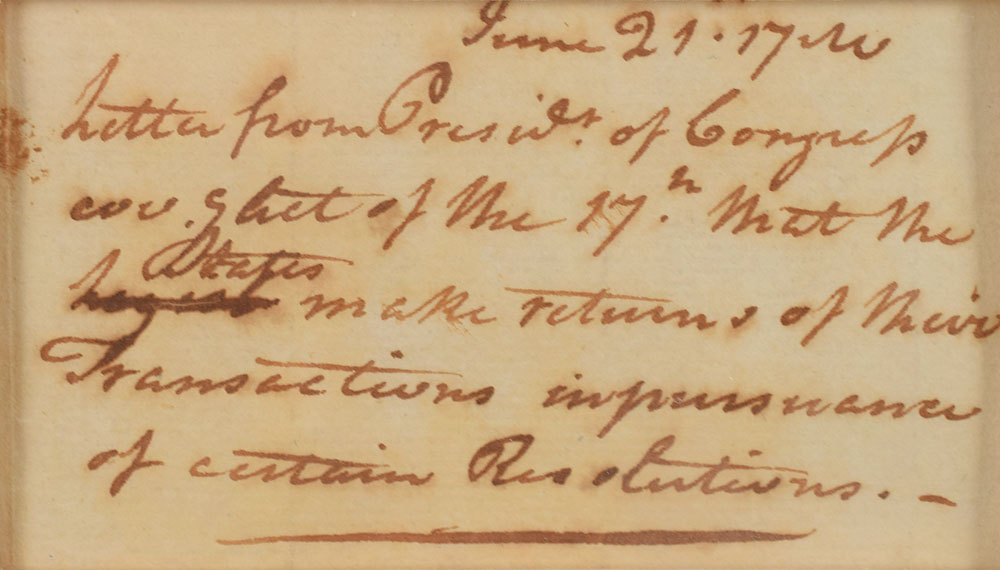 June 21. 17
Letter from Presidt. of Congress
cov. of the 17.th that the
States
make returns of their
Transactions in pursuance
of certain Resolutions. –